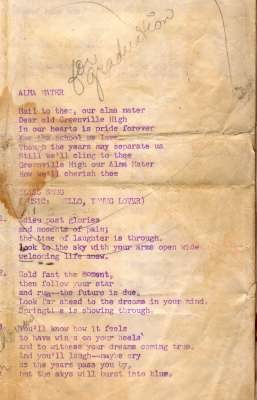 for
graduation
ALMA MATER
Hail to thee, our alma mater
Dear old Greenville High
In our hearts is pride forever
For the school we love
Though the years may separate us
Still we'll cling to thee
Greenville High our Alma Mater
How we'll cherish thee
CLASS SONG
(MUSIC: HELLO, YOUNG LOVER)
1. Adieu past glories
and moments of pain;
the time of laughter is through.
Look to the sky with your arms open wide
welcoming life anew.
2. Hold fast the moment,
then follow your star
and run--the future is due.
Look far ahead to the dreams in your mind.
Springtime is showing through.
3. You'll know how it feels
to have wings on your heels
and to witness your dreams coming true.
And you'll laugh--maybe cry
as the years pass you by,
but the skies will burst into blue.